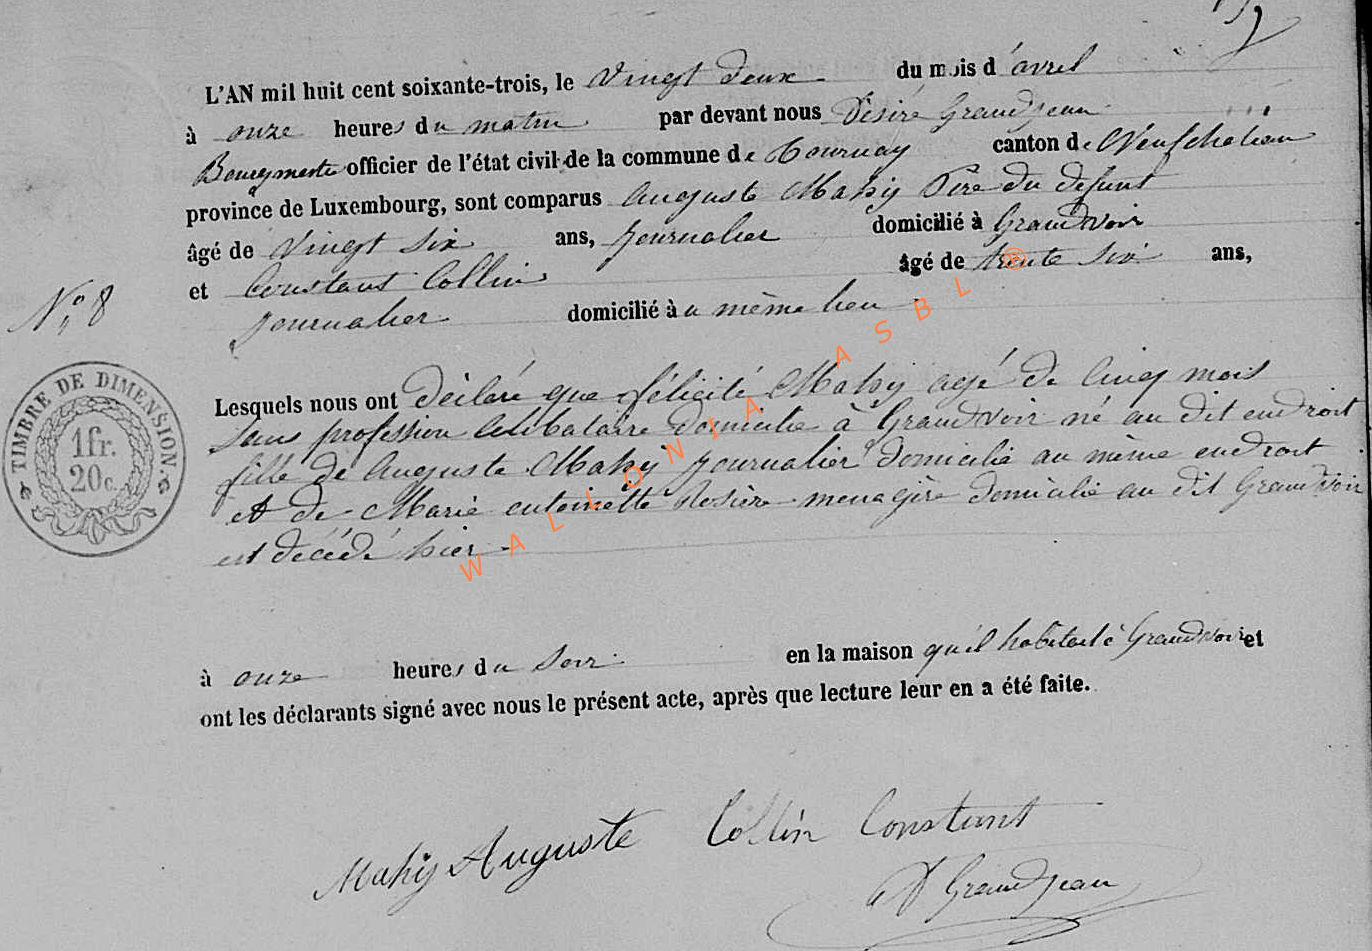 L'AN mil huit cent soixante-trois, le Vingt deux du mois d'avril
à onze heures du matin par devant nous Désiré Grandjean
Bourgmestre officier de l'état civil de la commune de Tournay canton de Neufchateau
province de Luxembourg, sont comparus Auguste Mahy Père du defunt
âgé de Vingt six ans, journalier domicilié à Grandvoir
et Constant Collin âgé de trente six ans,
journalier domicilié à u même lieu
N° 8
TIMBRE DE DIMENSION
1fr.
20c.
Lesquels nous ont déclaré que félicité Mahy agé de Cinq mois
sans profession Celibataire domicilié à Grandvoir né au dit endroit
fille de Auguste Mahy journalier domicilié au même endroit
et de Marie antoinette menagère domicilié au dit Grandvoir
est décédé hier
à onze heures du Soir en la maison qu'il habitait à Grandvoir et
ont les déclarants signé avec nous le présent acte, après que lecture leur en a été faite.
Mahy Auguste Collin Constant
D Grandjean
WALLONIA ASBL ®